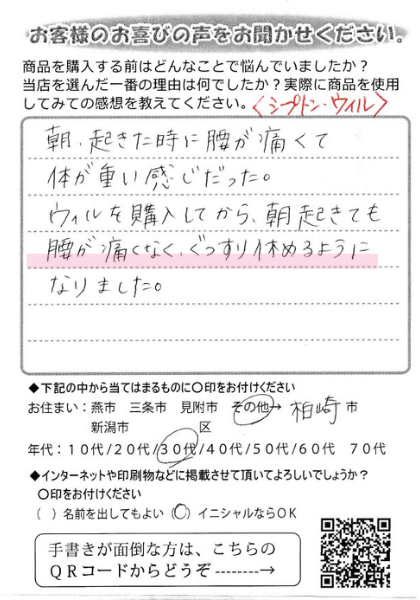 お客様のお喜びの声をお聞かせください。
商品を購入する前はどんなことで悩んでいましたか？
当店を選んだ一番の理由は何でしたか？実際に商品を使用
してみての感想を教えてください。〈シープトン・ウィル〉
朝、起きた時に腰が痛くて
体が重い感じだった。
ウィルを購入してから、朝起きても
腰が痛くなく、ぐっすり休めるように
なりました。
◆下記の中から当てはまるものに〇印をお付けください
お住まい：燕市　三条市　見附市　その他→　柏崎 市
新潟市　区
年代：１０代/２０代/３０代/４０代/５０代/６０代　７０代
◆インターネットや印刷物などに掲載させて頂いてよろしいでしょうか？
〇印をお付けください
（　）名前を出してもよい（〇）イニシャルならＯＫ
手書きが面倒な方は、こちらの
ＱＲコードからどうぞ--------→